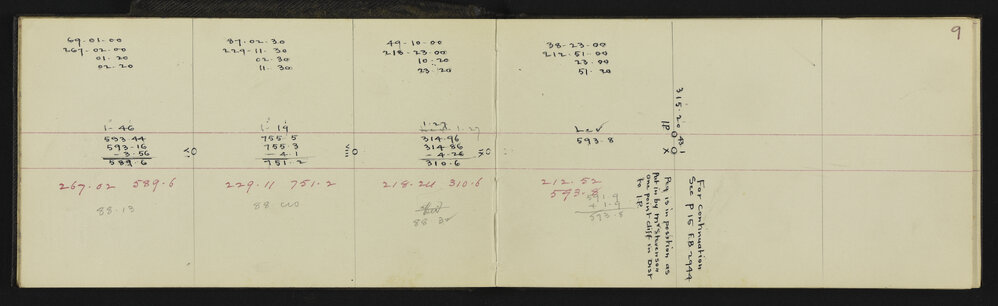 9
69-01-00
267-02-00
01-20
02-20
1-46
593.44
593.16
-3.56
589.6
267.02 589.6
88.13
87-02-30
229-11-30
02-30
11-30
1-19
755.5
755.3
-4.1
751.2
VIII
229.11 751.2
88
49-10-00
218-23-00
10-20
23-20
1.27
1.27
314.96
314.86
-4.26
310.6
218.24 310.6
88
38-23-00
212-51-00
23-00
51-20
Lev
593.8
212.52
593.8
593.8
315.20
IP
43.1
X
Peg is in position as
put in by Mr Stevenson
one point diff in Dist
to I.P.
For Continuation
See P 15 F.B 2944